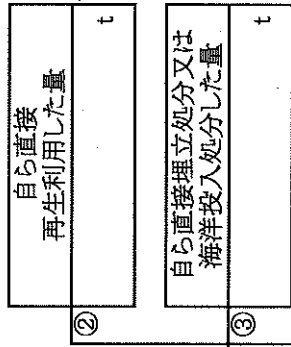 自ら直接
再生利用した量
t
②
自ら直接埋立処分又は
海洋投入処分した量
t
③